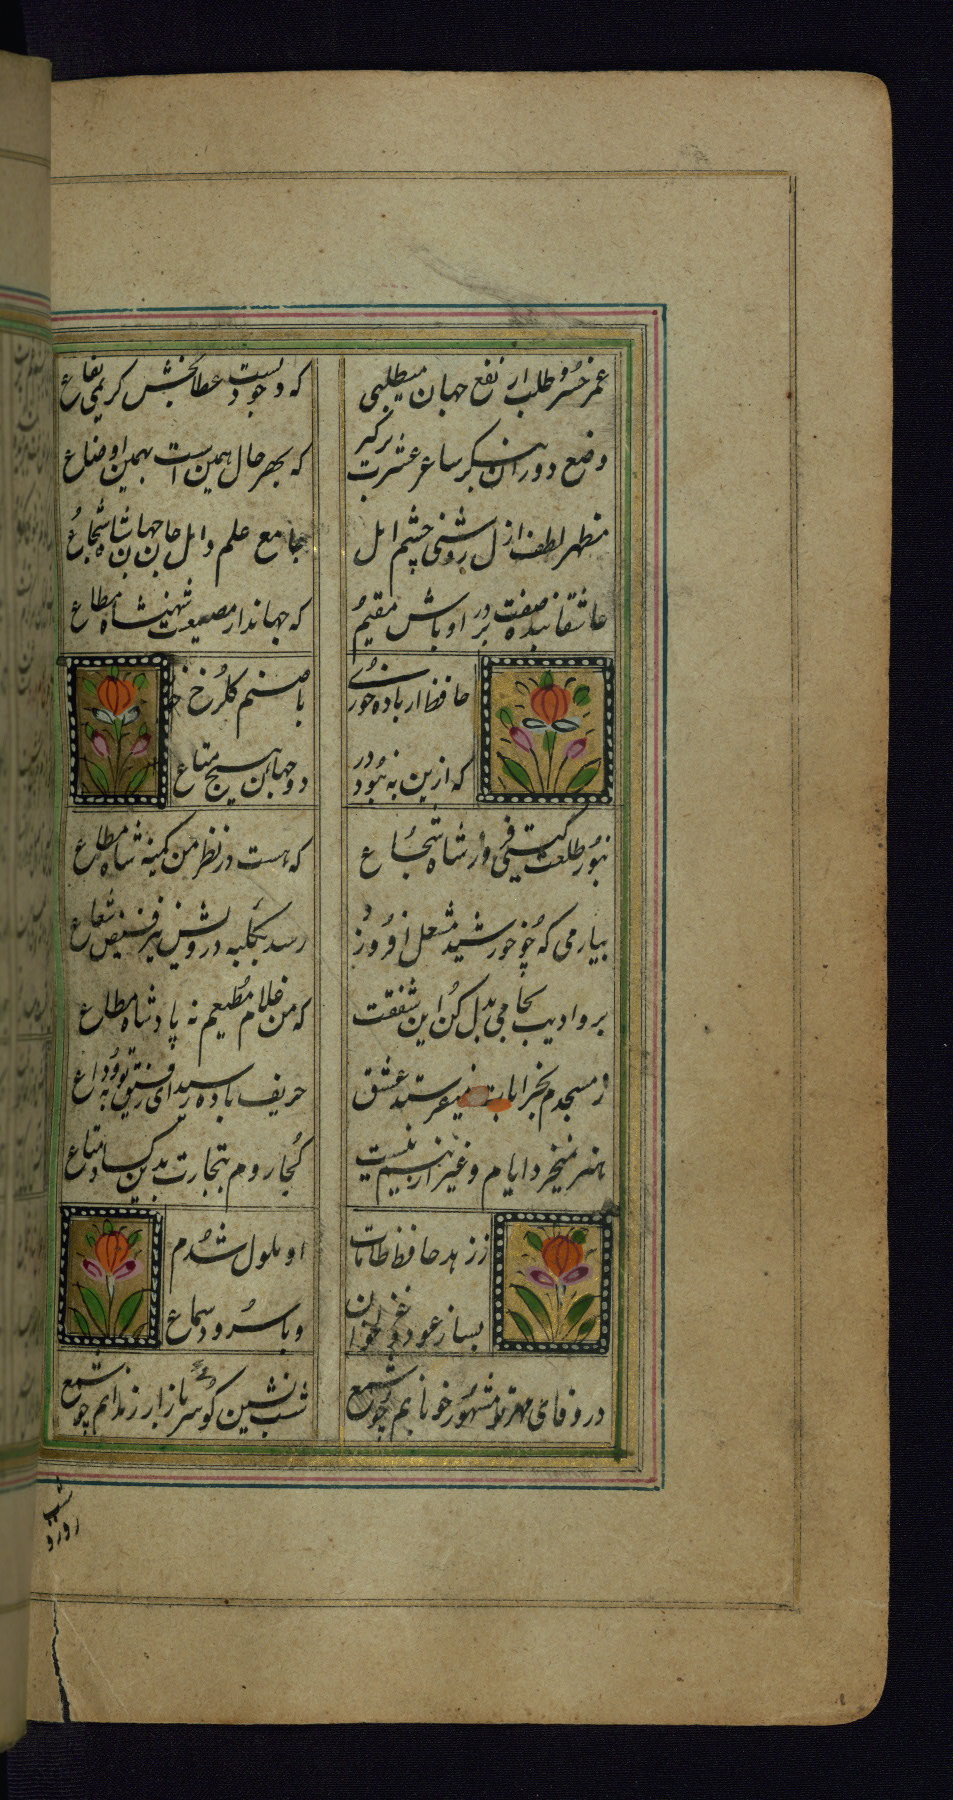 عمر خسرو طلب ار نفع جهان میطلبی که وجودیست عطابخش کریمی نفاع
وضع دوران بنکر ساغر عشرت برکیر که بهر حال همین است بهمین اوضاع
مظهر لطف ازل روشنی چشم امل جامع علم و امل جان جهان شاه شجاع
عاشقانه صفت بنده بر در او باش مقیم که جهاندار مصیعت شهنشاه مطاع
حافظ ار باده خوری با صنم کلرخ خو
که ازین به نبود در دو جهان هیچ متاع
بنور طلعت کیتی فروز شاه شجاع که هست در نظر من کمینه شاه مطاع
بیار می که چو خورشید مشعل افروزد رسد بکلبه درویش نیز فیض شعاع
برو ادیب بجامی بدل کن این شفقت که من غلام مطیعم نه پادشاه مطاع
ز مسجدم بخرابات میفرستد عشق حریف باده رسید ای رفیق توبه وداع
هنر نمیخرد ایام و غیر ازینم نیست کجا روم بتجارت بدین کساد متاع
ز زهد حافظ و طامات او ملول شدم
بساز عود و غزل خوان و با سرود سماع
در وفای مهر تو مشهور خوبانم چو شمع شب نشین کوی سربازان رندانم چو شمع
روز و شب